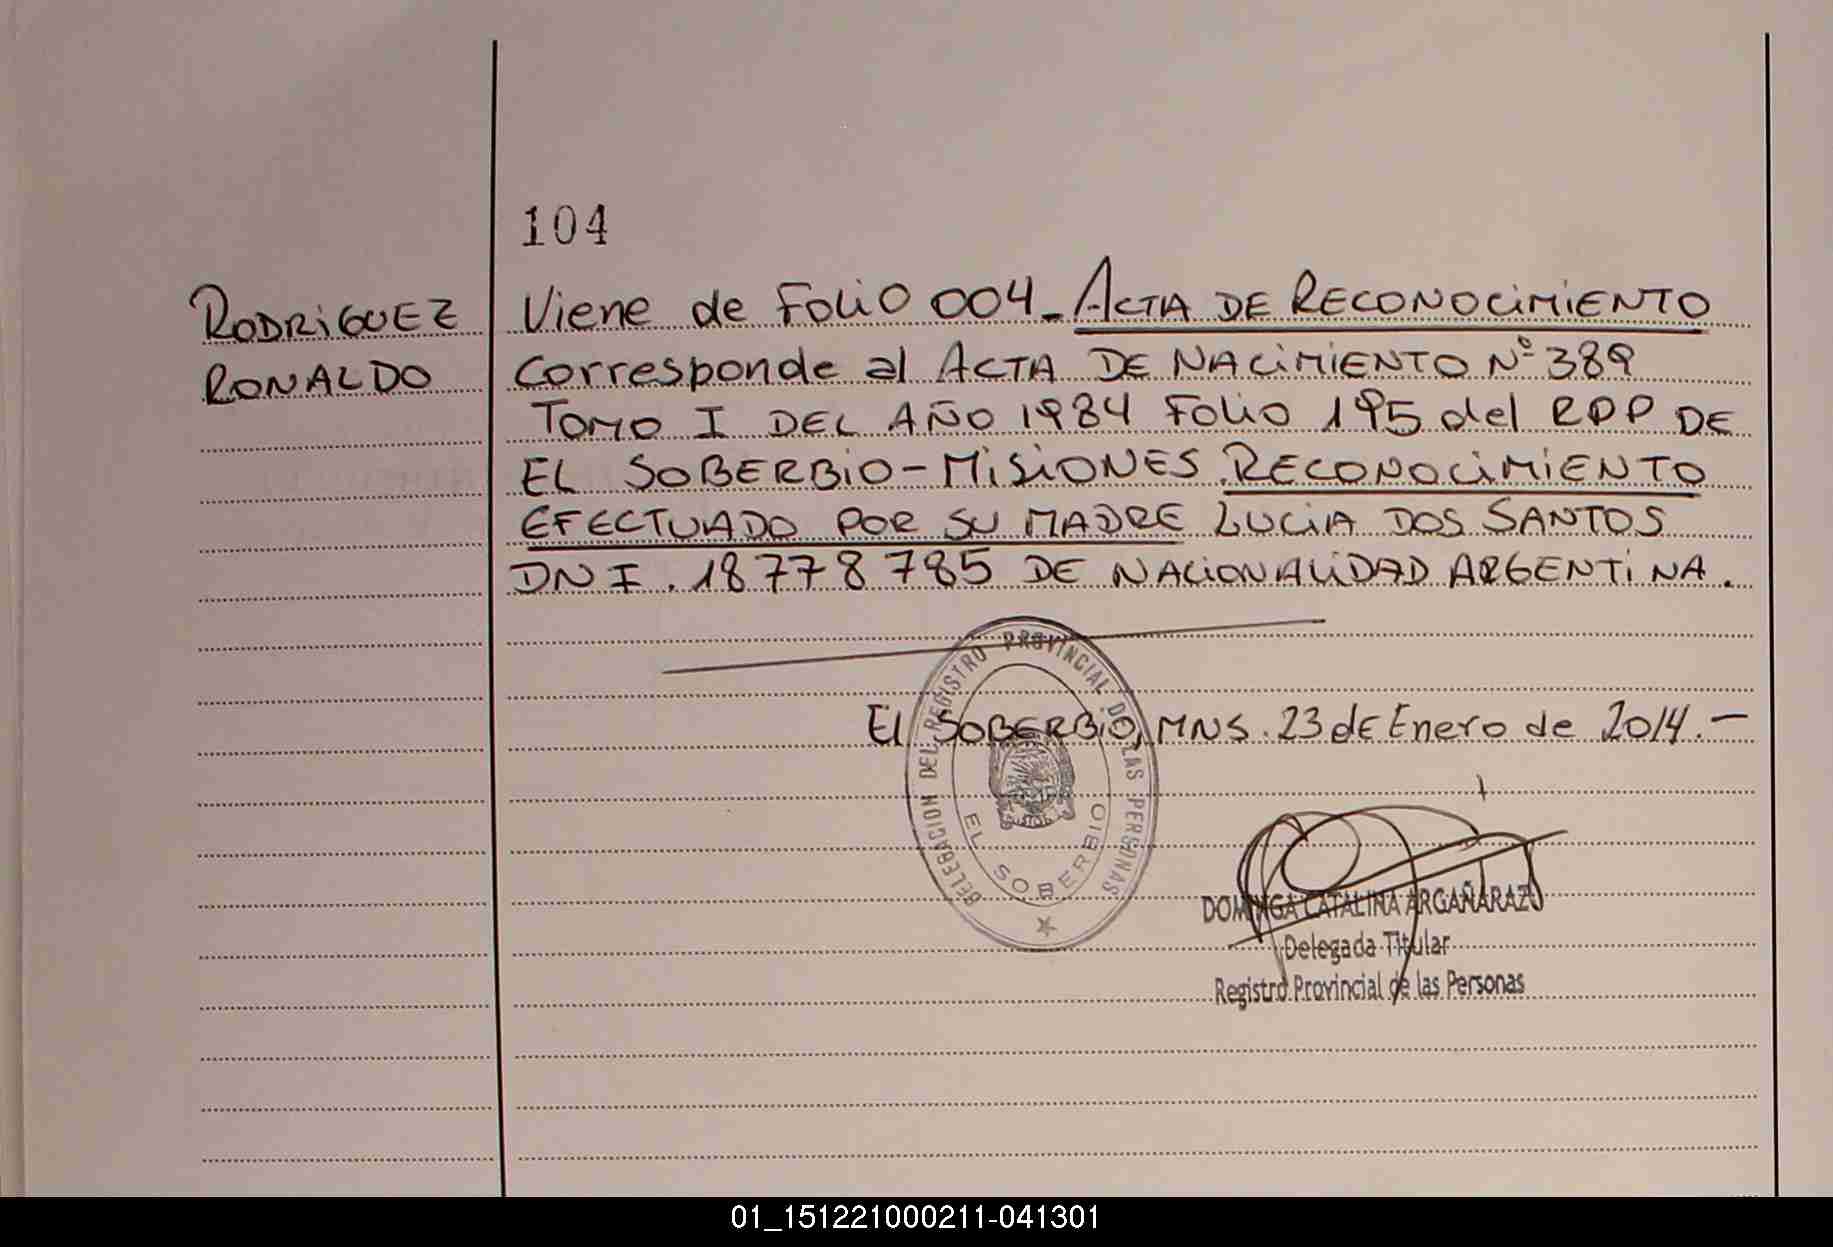 104
RODRIGUEZ
RONALDO
Viene de Folio 004_ ACTA DE RECONOCIMIENTO
Corresponde al ACTA DE NACIMIENTO Nº 389
TOMO I DEL AÑO 1984 Folio 195 del RPP DE
EL SOBERBIO - MISIONES. RECONOCIMIENTO
EFECTUADO POR SU MADRE LUCIA DOS SANTOS
DNI. 18778785 DE NACIONALIDAD ARGENTINA.
El SOBERBIO, MNS. 23 de Enero de 2014.-
DELEGACION DEL REGISTRO PROVINCIAL DE LAS PERSONAS
EL SOBERBIO
DOMINGA CATALINA ARGAÑARAZ
Delegada Titular
Registro Provincial de las Personas
01_151221000211-041301